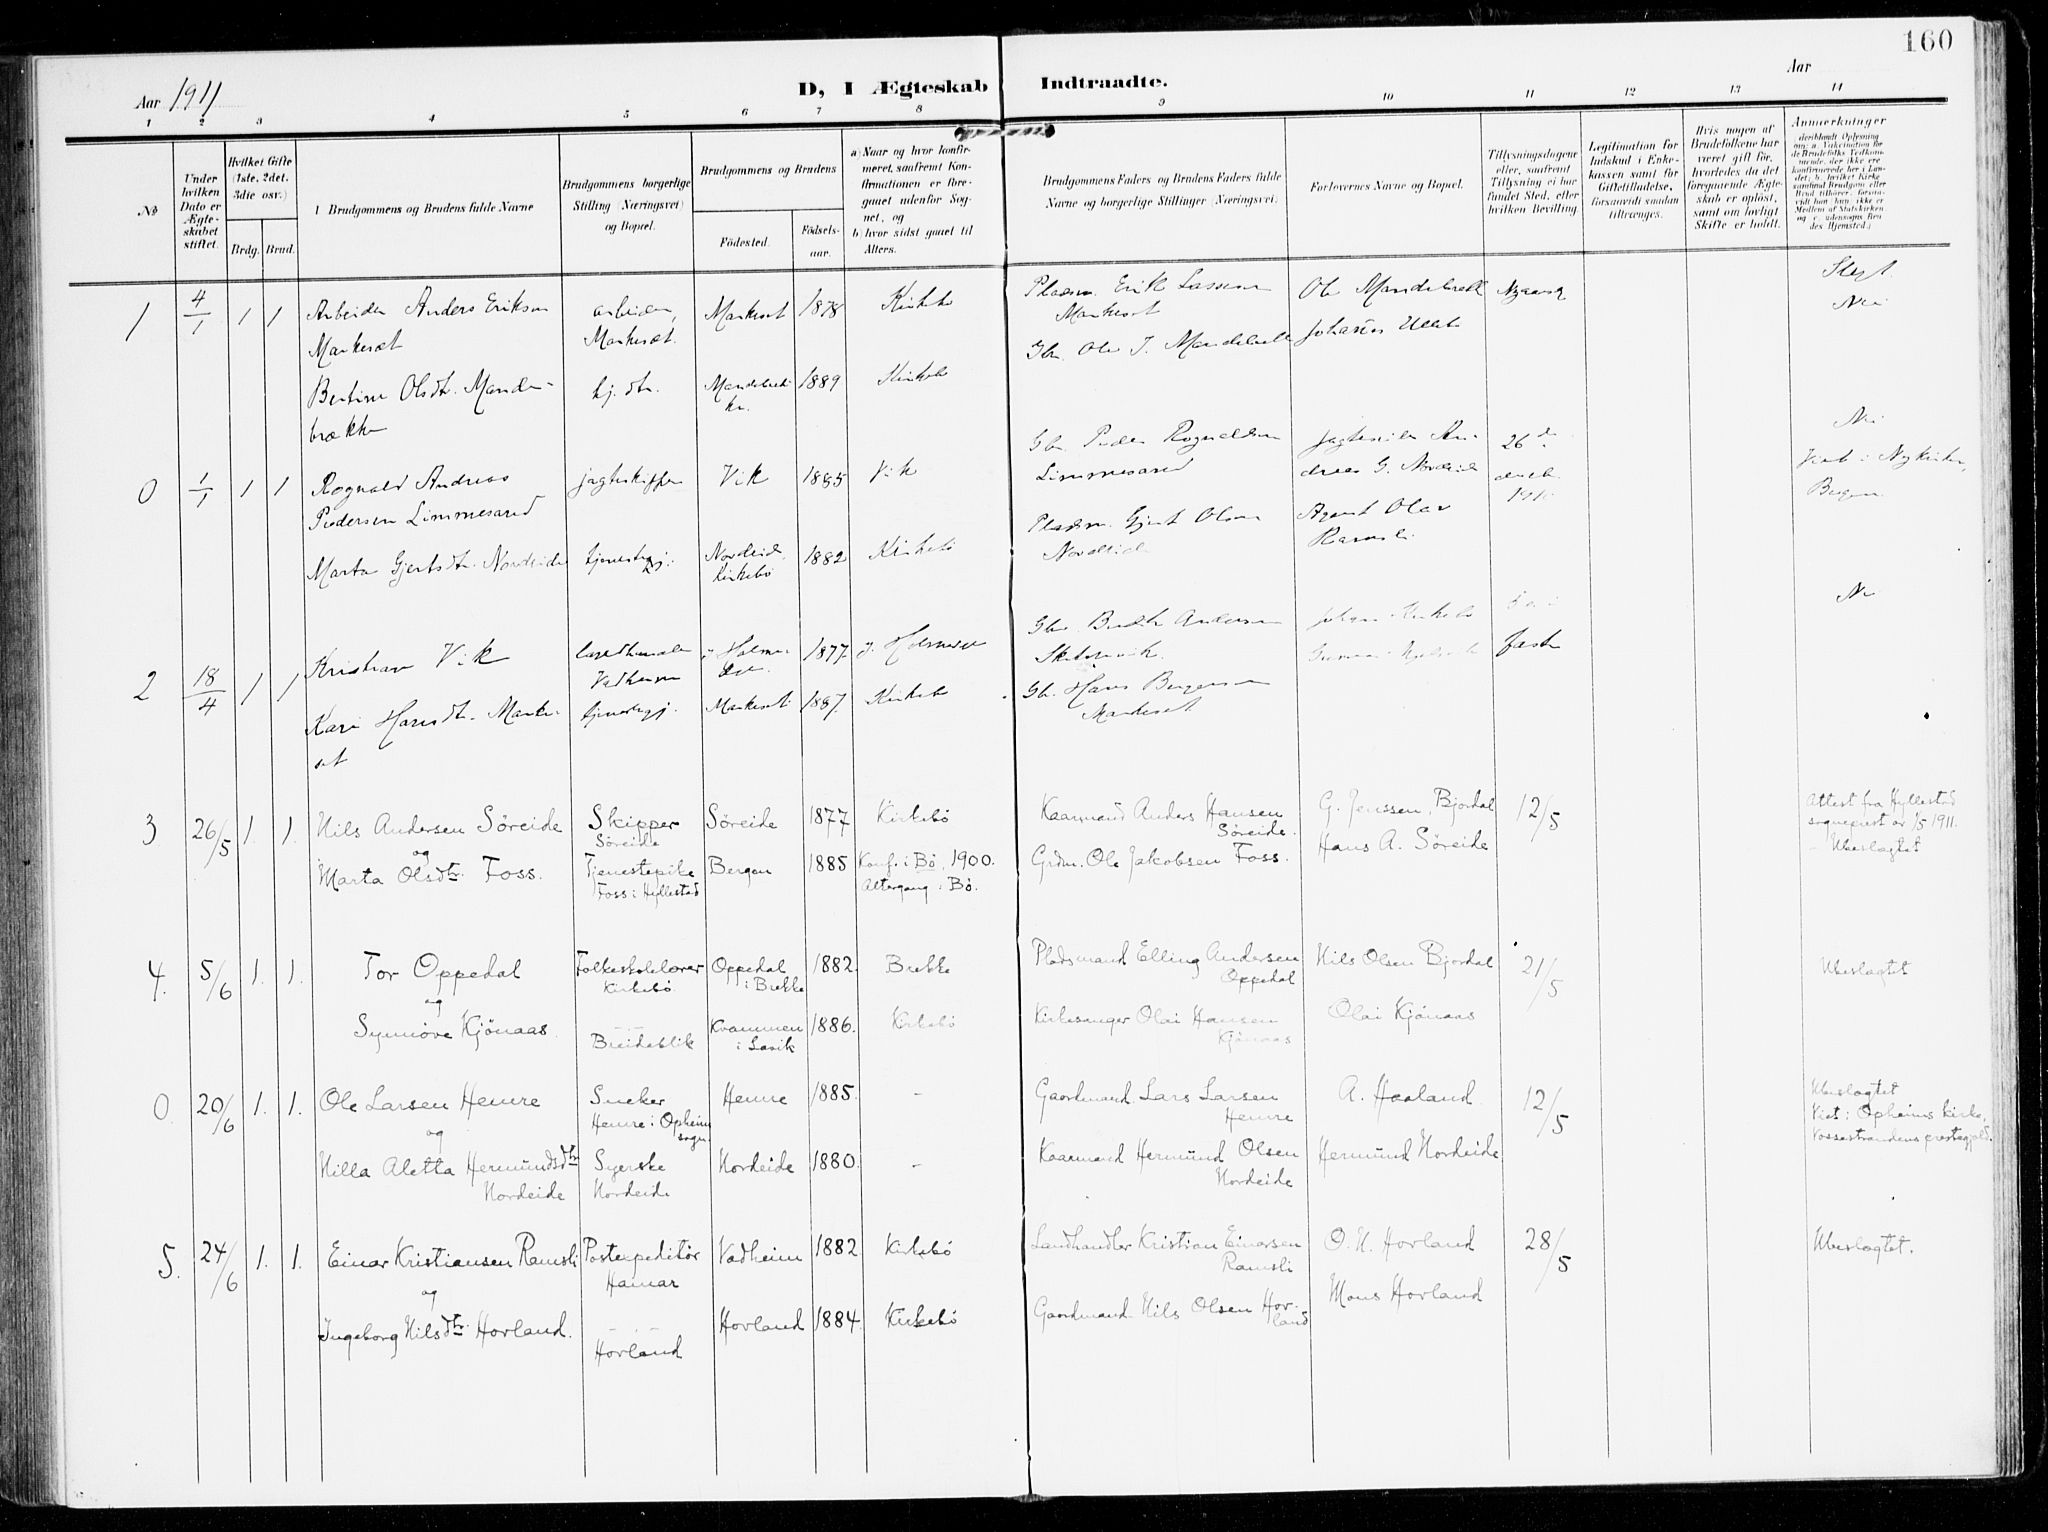 160
Aar 1911
D, I Ægteskab Indtraadte.
Aar
1 2 3 4 5 6 7 8 9 10 11 12 13 14
No
Under hvilken Dato er Ægteskabet stiftet.
Hvilket Gifte (1ste, 2det, 3die osv.)
Brdg. Brud.
Brudgommens og Brudens fulde Navne
Brudgommens borgerlige Stilling (Næringsvei) og Bopæl.
Brudgommens og Brudens
Födested. Födselsaar.
a) Naar og hvor konfirmeret, saafremt Konfirmationen er foregaaet udenfor Sognet, og
b) hvor sidst gaaet til Alters.
Brudgommens Faders og Brudens Faders fulde Navne og borgerlige Stillinger (Næringsvei)
Forlovernes Navne og Bopæl.
Tillysningsdagene eller, saafremt Tillysning ei har fundet Sted, efter hvilken Bevilling.
Legitimation for Indskud i Enkekassen samt for Giftetilladelse, forsaavidt saadan tiltrænges.
Hvis nogen af Brudefolkene har været gift för, hvorledes da det foregaaende Ægteskab er oplöst, samt om lovligt Skifte er holdt.
Anmerkninger
1 4/1 1 1 Arbeider Anders Eriksen Markeset arbeider, Markesæt. Markeset 1878 Kirkebö Pladsm. Erik Lassen Markeset
Ole Mandebrekk
Bertine Olsdtr. Mandebrække hj. dtr. 1889 Kirkebö Gbr. Ole J. Mandebrekk
Slegt. Nei
0 1/1 1 1 Rognald Andreas Pedersen Limmesand jagteskipper Vik 1885 Vik Gbr. Peder Rognaldsen Limmesand
26 de decb.
Marta Gjertsdtr. Nordeide tjenestegj. Nordeide Kirkebö 1882 Kirkebö Pladsm. Gjert Olsen Nordeide
Agent Olav Ramsli
Nei
Viet i Nykirken, Bergen
2 18/4 1 1 Kristian Vik Vadheim 1877 Gbr. Andersen
Johan Kirkebö
faste
Nei
Kari Hansdtr. Markeset tjenestegj. Markeset 1887. Kirkebö Gbr. Hans Bergersen Markeset
3 26/5 1. 1. Nils Andersen Söreide Skipper Söreide Söreide 1877 Kirkebö Kaarmand Anders Hansen Söreide.
G. Jenssen, Bjordal 12/5
Attest fra Hyllestad sogneprest av 1/5 1911.
- Ubeslagtet
og
Marta Olsdtr Foss. Tjenestepike Foss i Hyllestad Bergen 1885 Konf. i Bö. 1900. Altergang i Bö. Grdm. Ole Jakobsen Foss. Hans A. Söreide
4. 5/6 1. 1. Tor Oppedal Folkeskolelærer Kirkebö Oppedal i Brekke 1882. Brekke Pladsmand Elling Andersen Oppedal Nils Olsen Bjordal 21/5 Ubeslagtet
og
Synnöve Kjönaas. Breideblik Kvammen i Lavik 1886. Kirkebö Kirkesanger Olai Hansen Kjönaas Olai Kjönaas
0. 20/6 1. 1. Ole Larsen Hemre Sneker Hemre i Opheim sogn. Hemre 1885. - Gaardmand Lars Larsen Hemre A. Haaland 12/5 Ubeslagtet
Viet i Opheims kirke, Vossestrandens prestegjeld.
og
Nilla Aletta Hermundsdtr Nordeide Syerske Nordeide Nordeide 1880. - Kaarmand Hermund Olsen Nordeide Hermund Nordeide.
5. 24/6 1. 1. Einar Kristiansen Ramsli Postexpeditör Hamar Vadheim 1882 Kirkebö Landhandler Kristian Einarsen Ramsli O. N. Hovland 28/5 Ubeslagtet.
og
Ingeborg Nilsdtr Hovland. Hovland Hovland 1884. Kirkebö Gaardmand Nils Olsen Hovland Mons Hovland